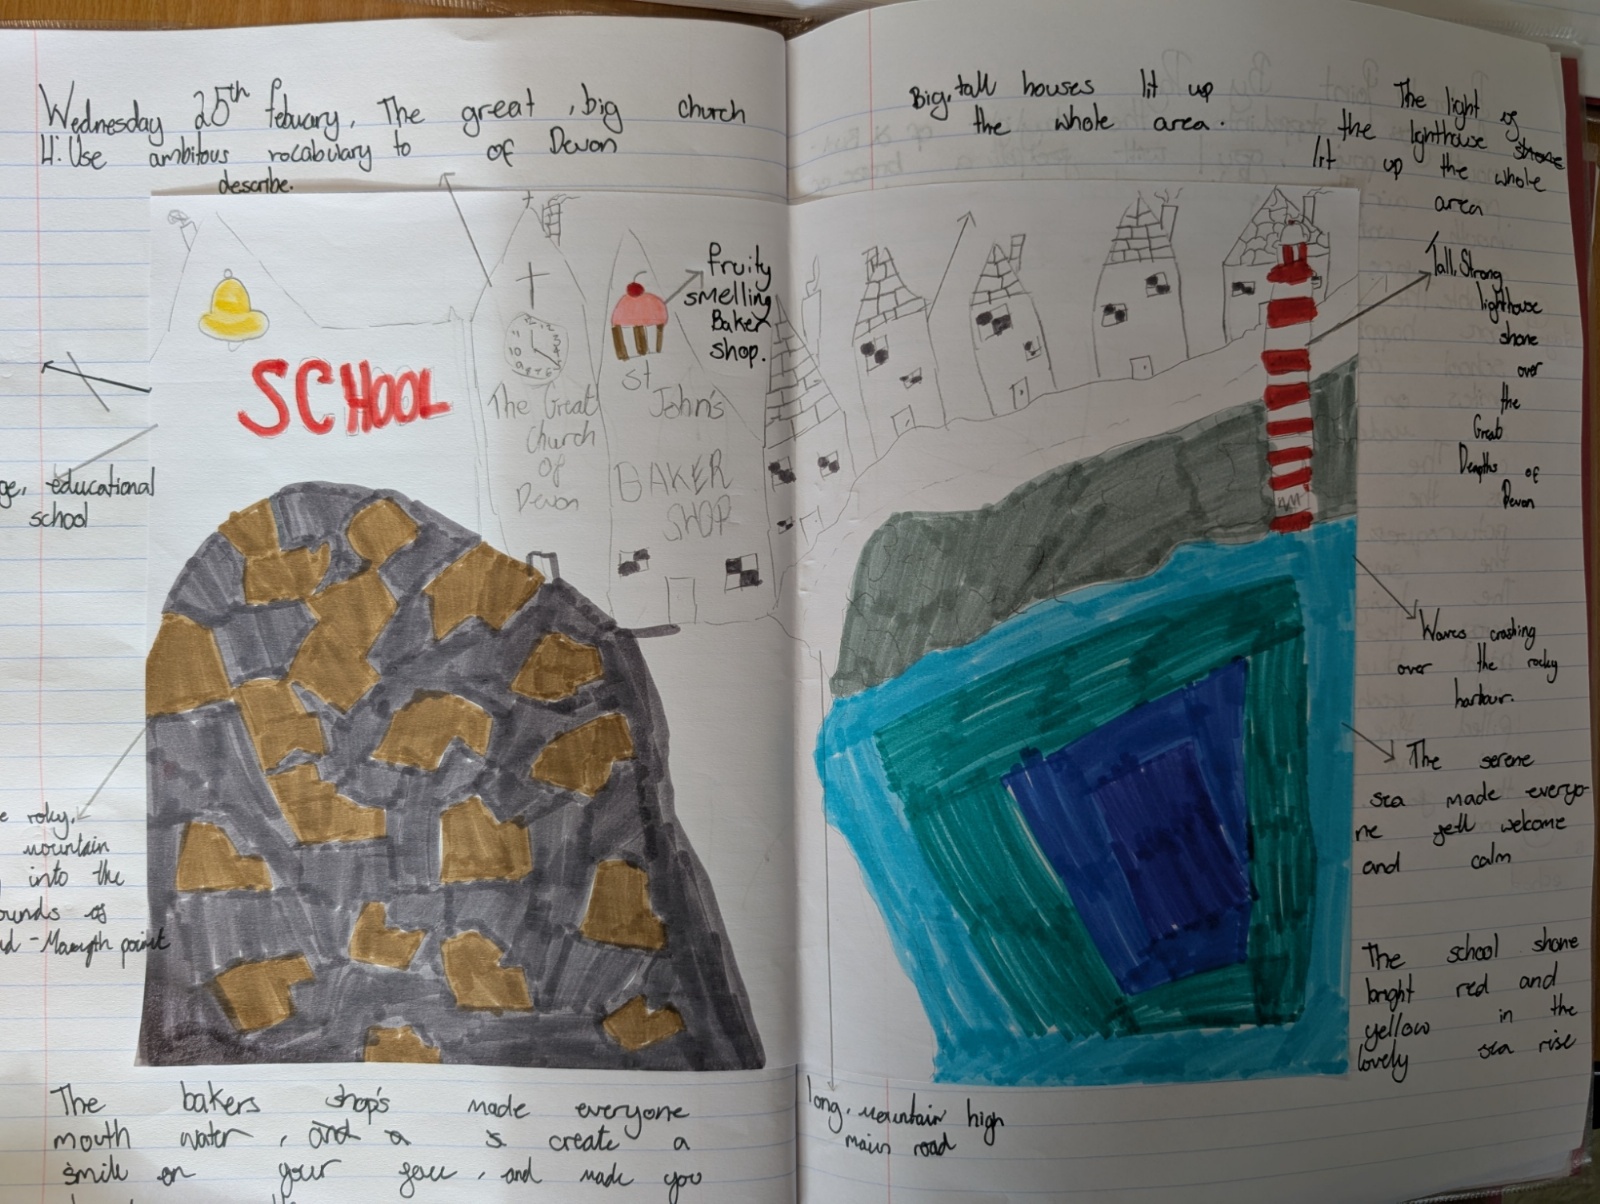 Wednesday 25th febuary.
LI: Use ambitous vocabulary to
describe.
The great, big church
of Devon
Big, tall houses lit up
the whole area.
The light of
the lighthouse shone
lit up the whole
area
fruity
smelling
Baker
shop.
SCHOOL
The Great
Church
of
Devon
St
John's
BAKER
SHOP
Tall, Strong
lighthouse
shone
over
the
Great
Deapths of
Devon
educational
school
Waves crashing
over the rocky
harbour.
The serene
sea made everyo-
ne feel welcome
and calm
roky,
mountain
into the
of
point
The school shone
bright red and
yellow in the
lovely sea rise
The bakers shop's made everyone
mouth water, and a create a
smile on your face, and made you
long, mountain high
main road